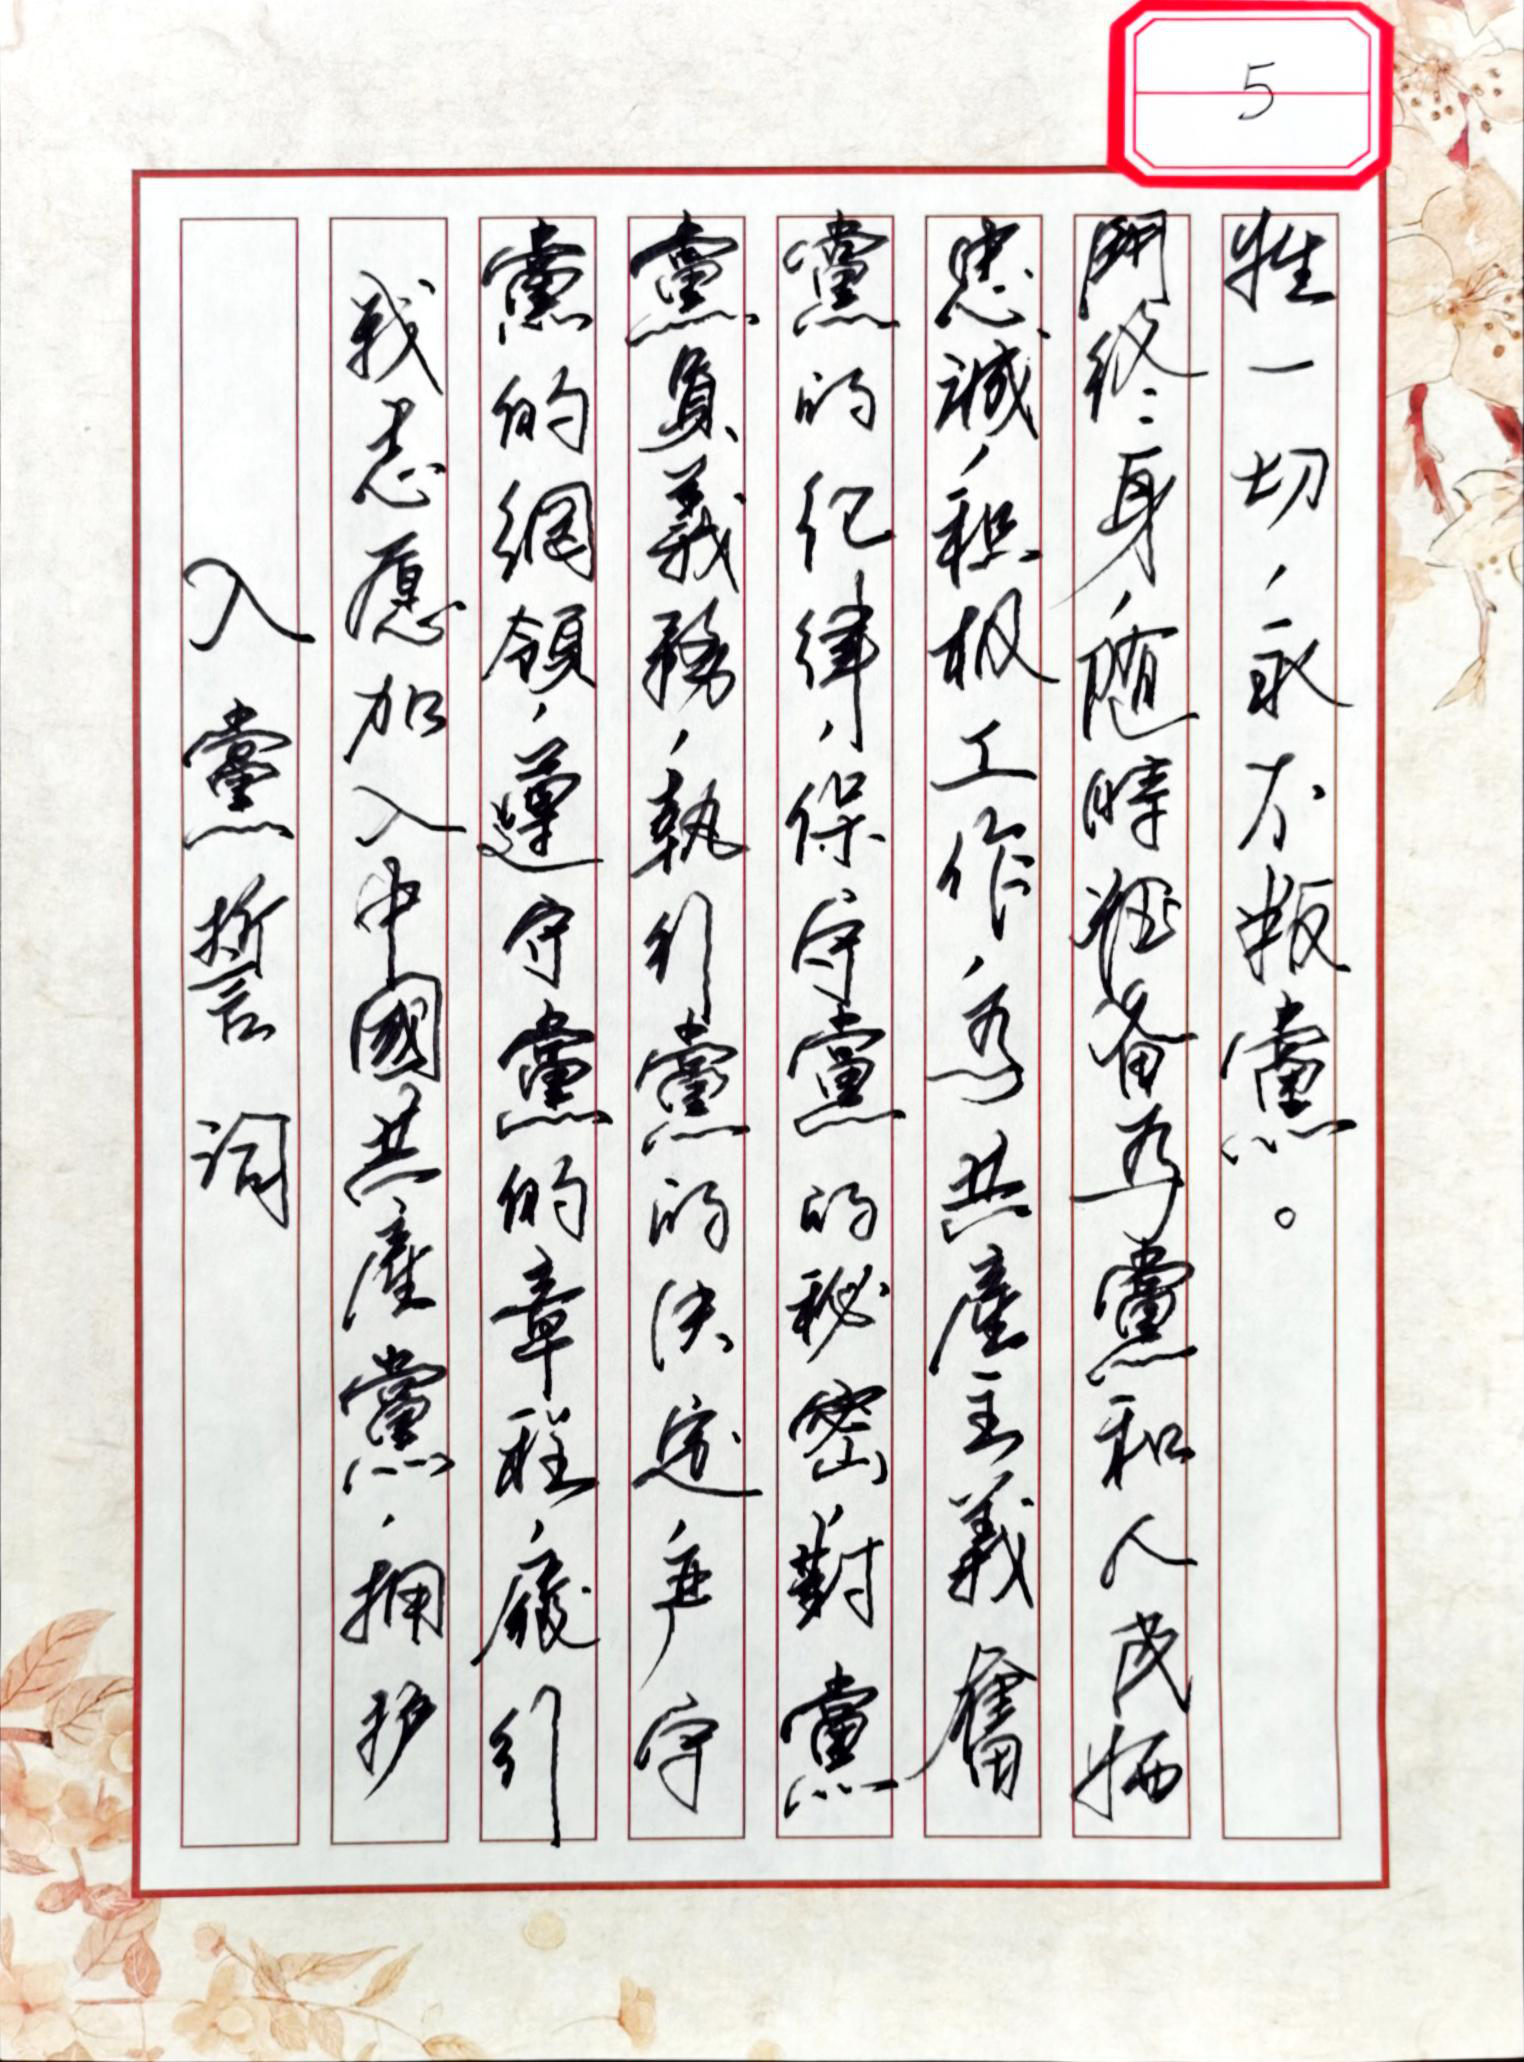 5
入黨誓词
我志愿加入中國共產黨，拥护
黨的綱領，遵守黨的章程，履行
黨員義務，執行黨的决定，严守
黨的纪律，保守黨的秘密，對黨
忠诚，积极工作，為共產主義奮
鬥終身，随時准备為黨和人民牺
牲一切，永不叛黨。